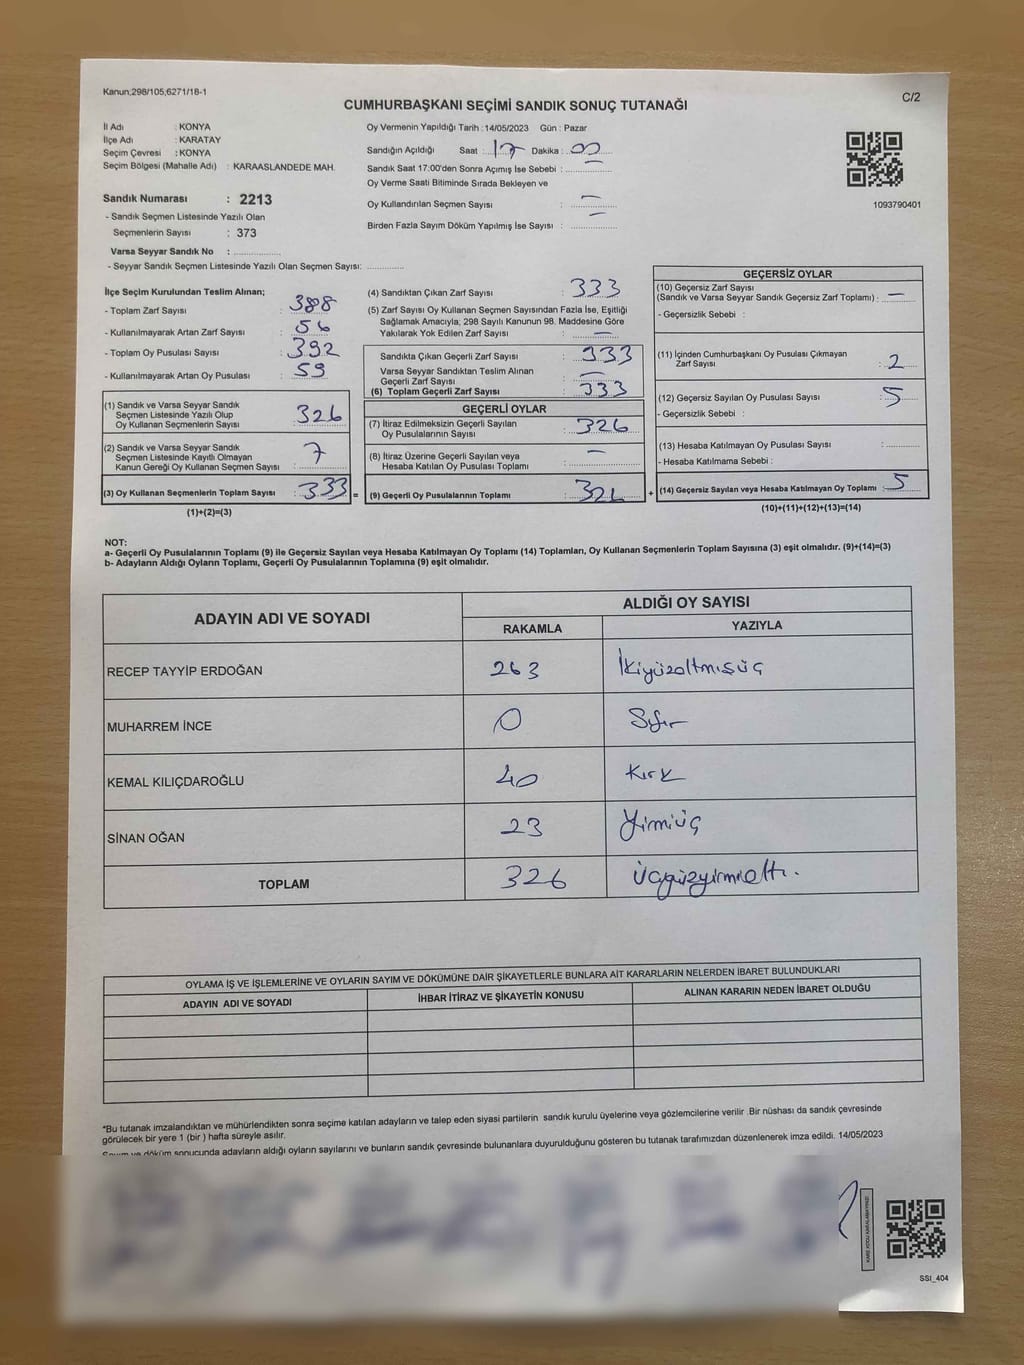 Kanun;298/105;6271/18-1
C/2
CUMHURBAŞKANI SEÇİMİ SANDIK SONUÇ TUTANAĞI
İl Adı : KONYA
İlçe Adı : KARATAY
Seçim Çevresi : KONYA
Seçim Bölgesi (Mahalle Adı) : KARAASLANDEDE MAH.
Sandık Numarası : 2213
- Sandık Seçmen Listesinde Yazılı Olan
Seçmenlerin Sayısı : 373
Varsa Seyyar Sandık No : ..............
- Seyyar Sandık Seçmen Listesinde Yazılı Olan Seçmen Sayısı: ............
Oy Vermenin Yapıldığı Tarih : 14/05/2023 Gün : Pazar
Sandığın Açıldığı Saat : 17 Dakika : 00
Sandık Saat 17:00'den Sonra Açımış İse Sebebi : –
Oy Verme Saati Bitiminde Sırada Bekleyen ve
Oy Kullandırılan Seçmen Sayısı : –
Birden Fazla Sayım Döküm Yapılmış İse Sayısı : –
1093790401
İlçe Seçim Kurulundan Teslim Alınan;
- Toplam Zarf Sayısı : 388
- Kullanılmayarak Artan Zarf Sayısı : 56
- Toplam Oy Pusulası Sayısı : 392
- Kullanılmayarak Artan Oy Pusulası : 59
(1) Sandık ve Varsa Seyyar Sandık
Seçmen Listesinde Yazılı Olup
Oy Kullanan Seçmenlerin Sayısı : 326
(2) Sandık ve Varsa Seyyar Sandık
Seçmen Listesinde Kayıtlı Olmayan
Kanun Gereği Oy Kullanan Seçmen Sayısı : 7
(3) Oy Kullanan Seçmenlerin Toplam Sayısı : 333 =
(1)+(2)=(3)
(4) Sandıktan Çıkan Zarf Sayısı : 333
(5) Zarf Sayısı Oy Kullanan Seçmen Sayısından Fazla İse, Eşitliği
Sağlamak Amacıyla; 298 Sayılı Kanunun 98. Maddesine Göre
Yakılarak Yok Edilen Zarf Sayısı : –
Sandıkta Çıkan Geçerli Zarf Sayısı : 333
Varsa Seyyar Sandıktan Teslim Alınan
Geçerli Zarf Sayısı : –
(6) Toplam Geçerli Zarf Sayısı : 333
GEÇERLİ OYLAR
(7) İtiraz Edilmeksizin Geçerli Sayılan
Oy Pusulalarının Sayısı : 326
(8) İtiraz Üzerine Geçerli Sayılan veya
Hesaba Katılan Oy Pusulası Toplamı : –
(9) Geçerli Oy Pusulalarının Toplamı : 326 +
GEÇERSİZ OYLAR
(10) Geçersiz Zarf Sayısı
(Sandık ve Varsa Seyyar Sandık Geçersiz Zarf Toplamı) : –
- Geçersizlik Sebebi :
(11) İçinden Cumhurbaşkanı Oy Pusulası Çıkmayan
Zarf Sayısı : 2
(12) Geçersiz Sayılan Oy Pusulası Sayısı : 5
- Geçersizlik Sebebi :
(13) Hesaba Katılmayan Oy Pusulası Sayısı : ..........
- Hesaba Katılmama Sebebi :
(14) Geçersiz Sayılan veya Hesaba Katılmayan Oy Toplamı : 5
(10)+(11)+(12)+(13)=(14)
NOT:
a- Geçerli Oy Pusulalarının Toplamı (9) ile Geçersiz Sayılan veya Hesaba Katılmayan Oy Toplamı (14) Toplamları, Oy Kullanan Seçmenlerin Toplam Sayısına (3) eşit olmalıdır. (9)+(14)=(3)
b- Adayların Aldığı Oyların Toplamı, Geçerli Oy Pusulalarının Toplamına (9) eşit olmalıdır.
ADAYIN ADI VE SOYADI ALDIĞI OY SAYISI
RAKAMLA YAZIYLA
RECEP TAYYİP ERDOĞAN 263 İkiyüzaltmışüç
MUHARREM İNCE 0 Sıfır
KEMAL KILIÇDAROĞLU 40 Kırk
SİNAN OĞAN 23 Yirmiüç
TOPLAM 326 Üçyüzyirmialtı.
OYLAMA İŞ VE İŞLEMLERİNE VE OYLARIN SAYIM VE DÖKÜMÜNE DAİR ŞİKAYETLERLE BUNLARA AİT KARARLARIN NELERDEN İBARET BULUNDUKLARI
ADAYIN ADI VE SOYADI İHBAR İTİRAZ VE ŞİKAYETİN KONUSU ALINAN KARARIN NEDEN İBARET OLDUĞU
*Bu tutanak imzalandıktan ve mühürlendikten sonra seçime katılan adayların ve talep eden siyasi partilerin sandık kurulu üyelerine veya gözlemcilerine verilir .Bir nüshası da sandık çevresinde
görülecek bir yere 1 (bir ) hafta süreyle asılır.
Sayım ve döküm sonucunda adayların aldığı oyların sayılarını ve bunların sandık çevresinde bulunanlara duyurulduğunu gösteren bu tutanak tarafımızdan düzenlenerek imza edildi. 14/05/2023
SSI_404